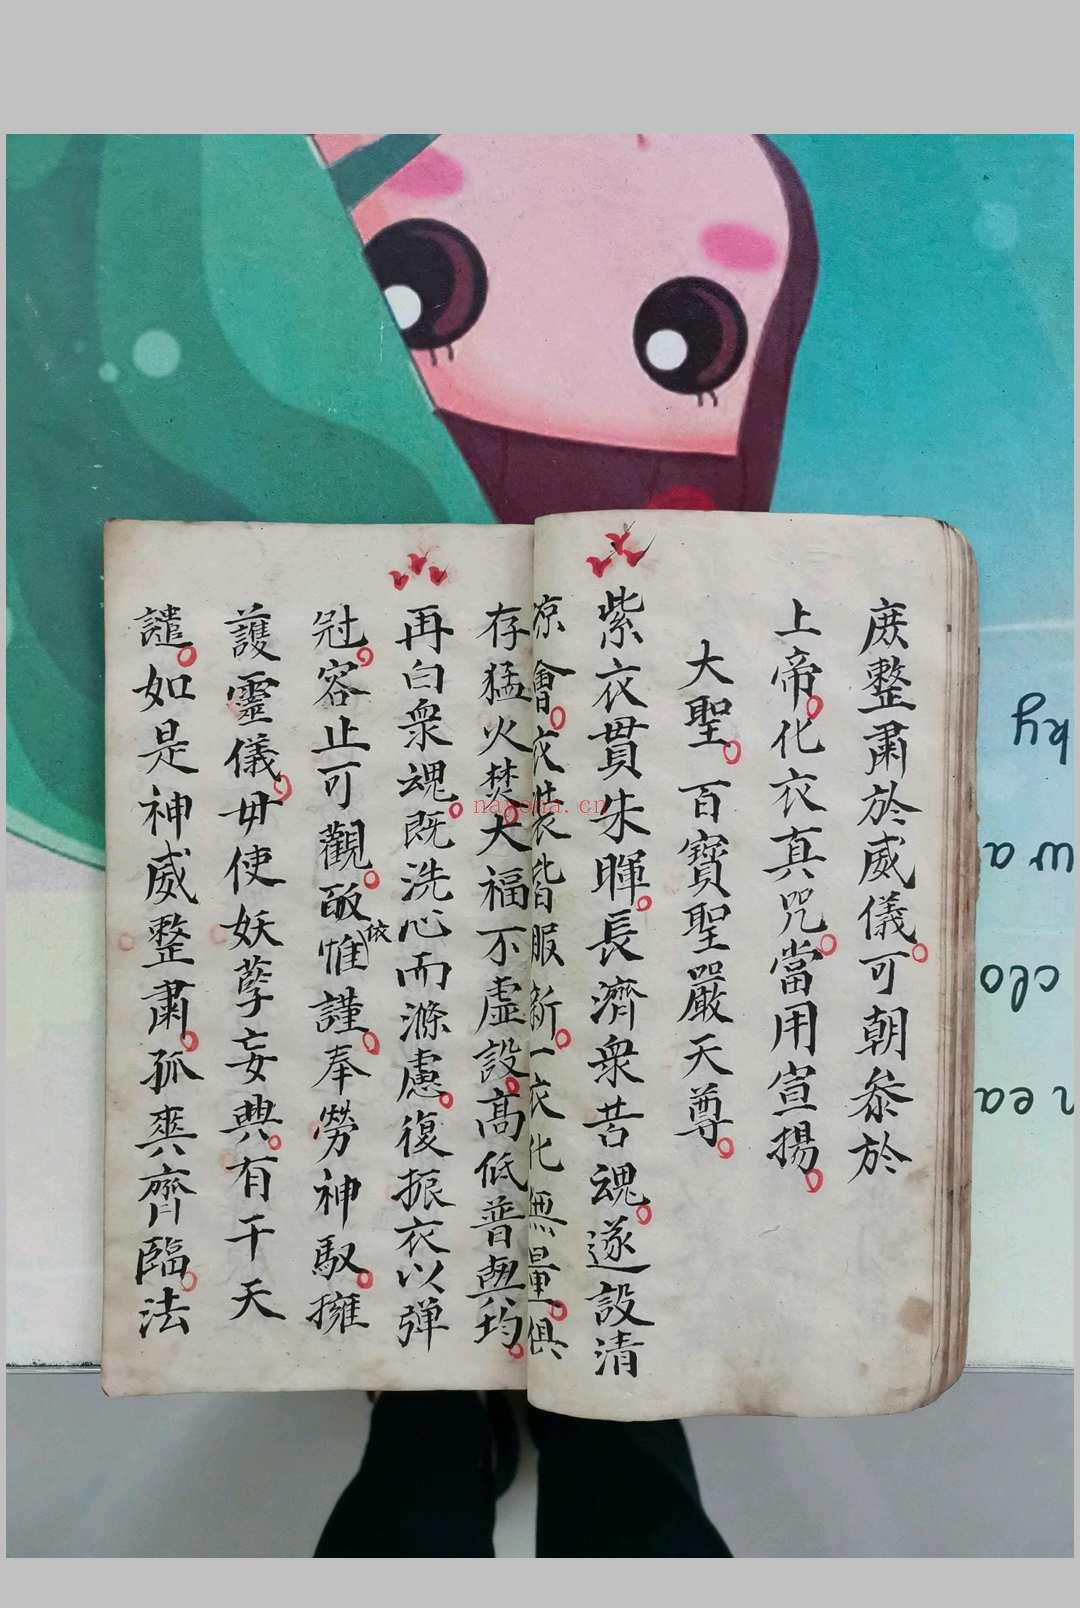 庶整肅於威儀可朝叅於
上帝化衣真咒當用宣揚
大聖百寶聖嚴天尊
紫衣貫朱暉長濟衆苦魂遂設清
凉會衣裝皆服新一衣化無量俱
存猛火焚大福不虛設高低普與均
再白衆魂既洗心而滌慮復振衣以弹
冠容止可觀皈依惟謹奉勞神馭擁
護靈儀毋使妖孽妄興有干天
譴如是神威整肅孤爽齊臨法
nayona.cn
ky
wa
clo
nea